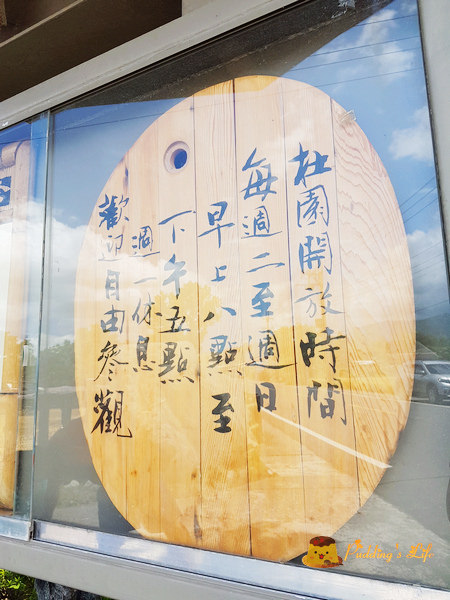 杜園開放時間
每週二至週日
早上八點至
下午五點
週一休息
歡迎自由參觀
Pudding's Life